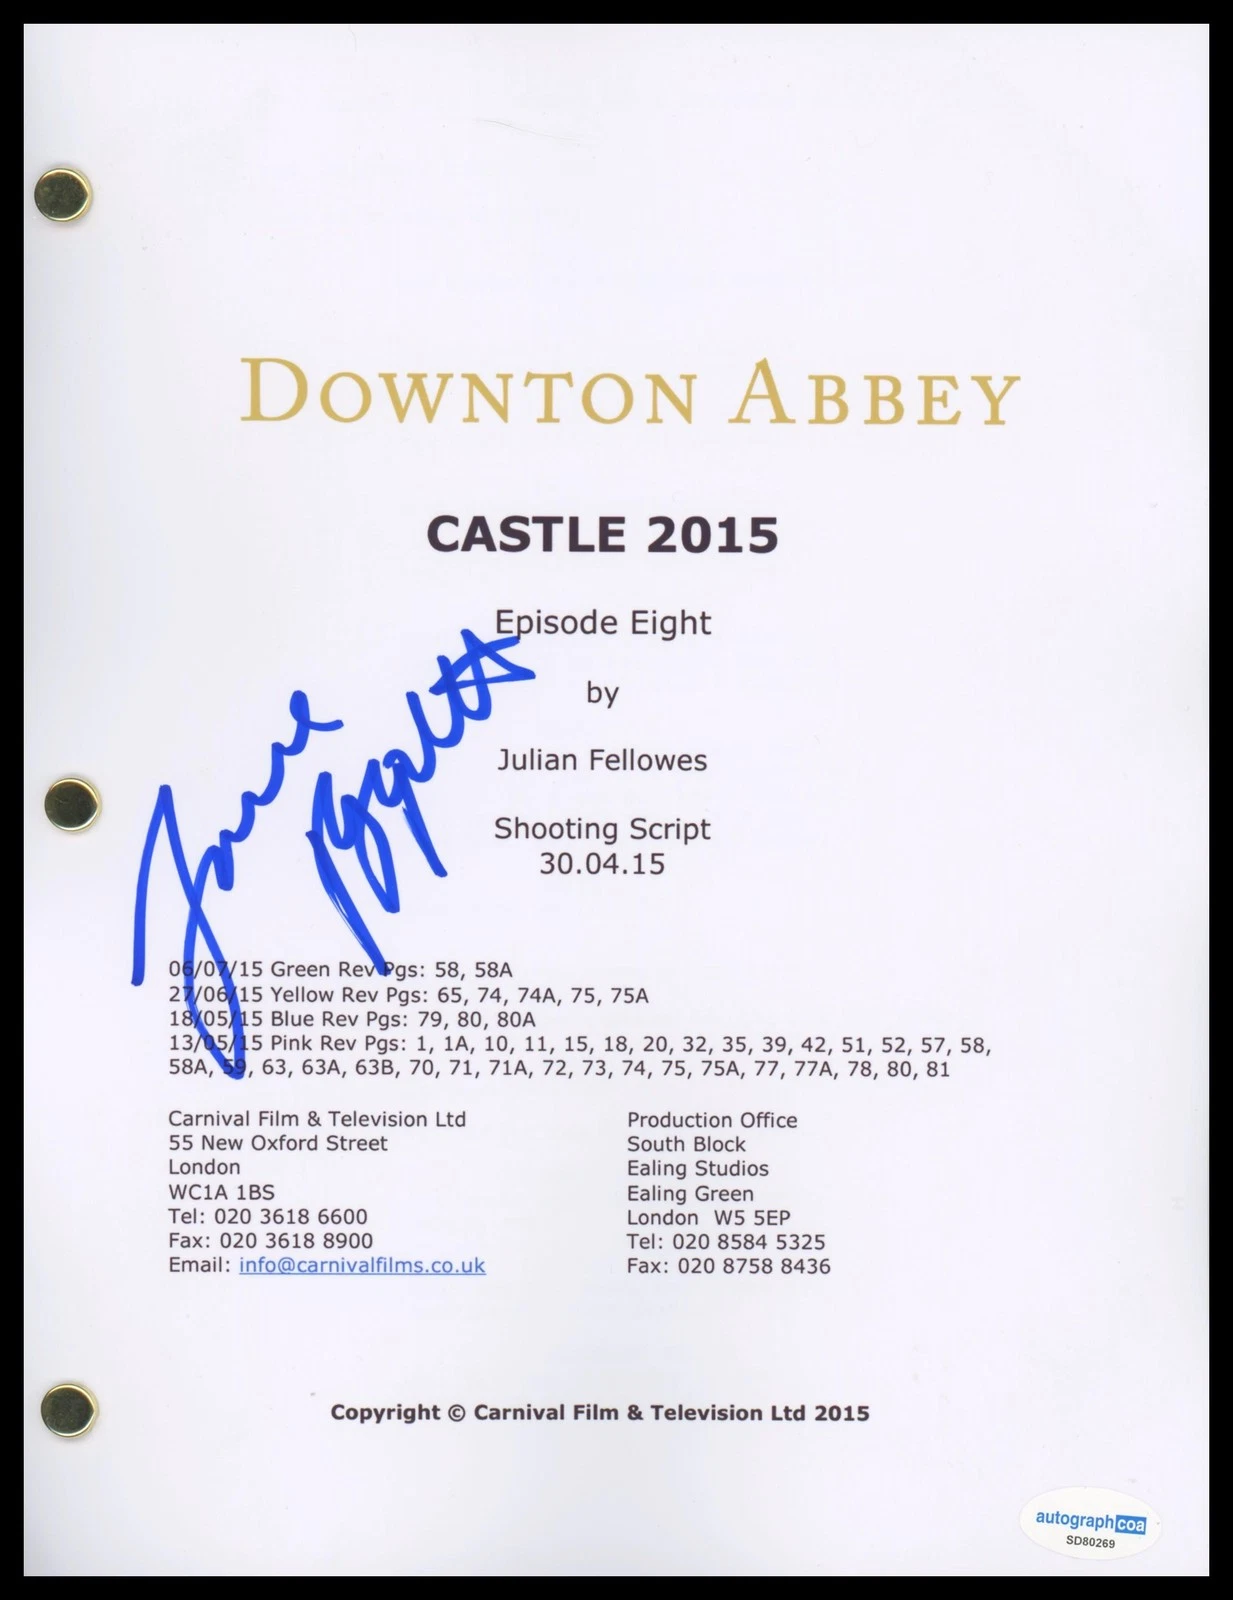 DOWNTON ABBEY
CASTLE 2015
Episode Eight
by
Julian Fellowes
Shooting Script
30.04.15
06/07/15 Green Rev Pgs: 58, 58A
27/06/15 Yellow Rev Pgs: 65, 74, 74A, 75, 75A
18/05/15 Blue Rev Pgs: 79, 80, 80A
13/05/15 Pink Rev Pgs: 1, 1A, 10, 11, 15, 18, 20, 32, 35, 39, 42, 51, 52, 57, 58,
58A, 59, 63, 63A, 63B, 70, 71, 71A, 72, 73, 74, 75, 75A, 77, 77A, 78, 80, 81
Carnival Film & Television Ltd
55 New Oxford Street
London
WC1A 1BS
Tel: 020 3618 6600
Fax: 020 3618 8900
Email: info@carnivalfilms.co.uk
Production Office
South Block
Ealing Studios
Ealing Green
London W5 5EP
Tel: 020 8584 5325
Fax: 020 8758 8436
Copyright © Carnival Film & Television Ltd 2015
autograph coa
SD80269